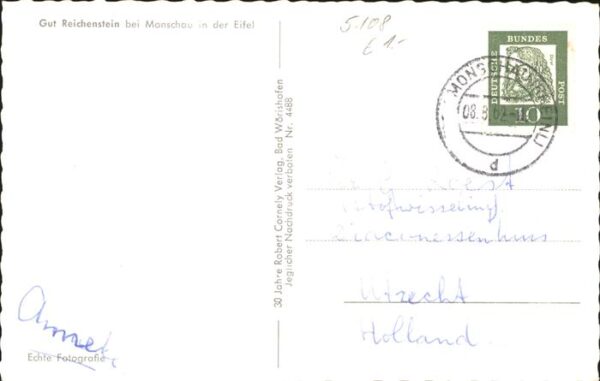 Gut Reichenstein bei Monschau in der Eifel
5.108
£ 1.-
DEUTSCHE BUNDES POST
10
MONSCHAU
08.8.62
d
30 Jahre Robert Cornely Verlag, Bad Wörishofen
Jeglicher Nachdruck verboten Nr. 4488
Stofwisseling
Diaconessenhuis
Utrecht
Holland.
Echte Fotografie